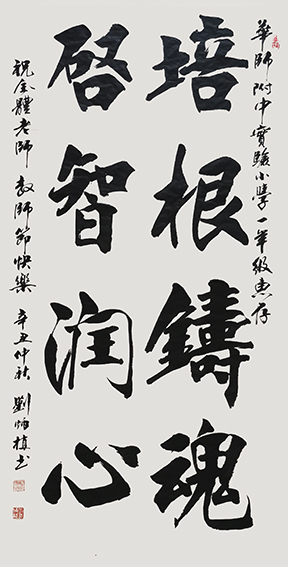 華師附中實驗小學一年級惠存
培根鑄魂
啓智润心
祝全體老師教師節快樂 辛丑仲秋 劉炳楨书